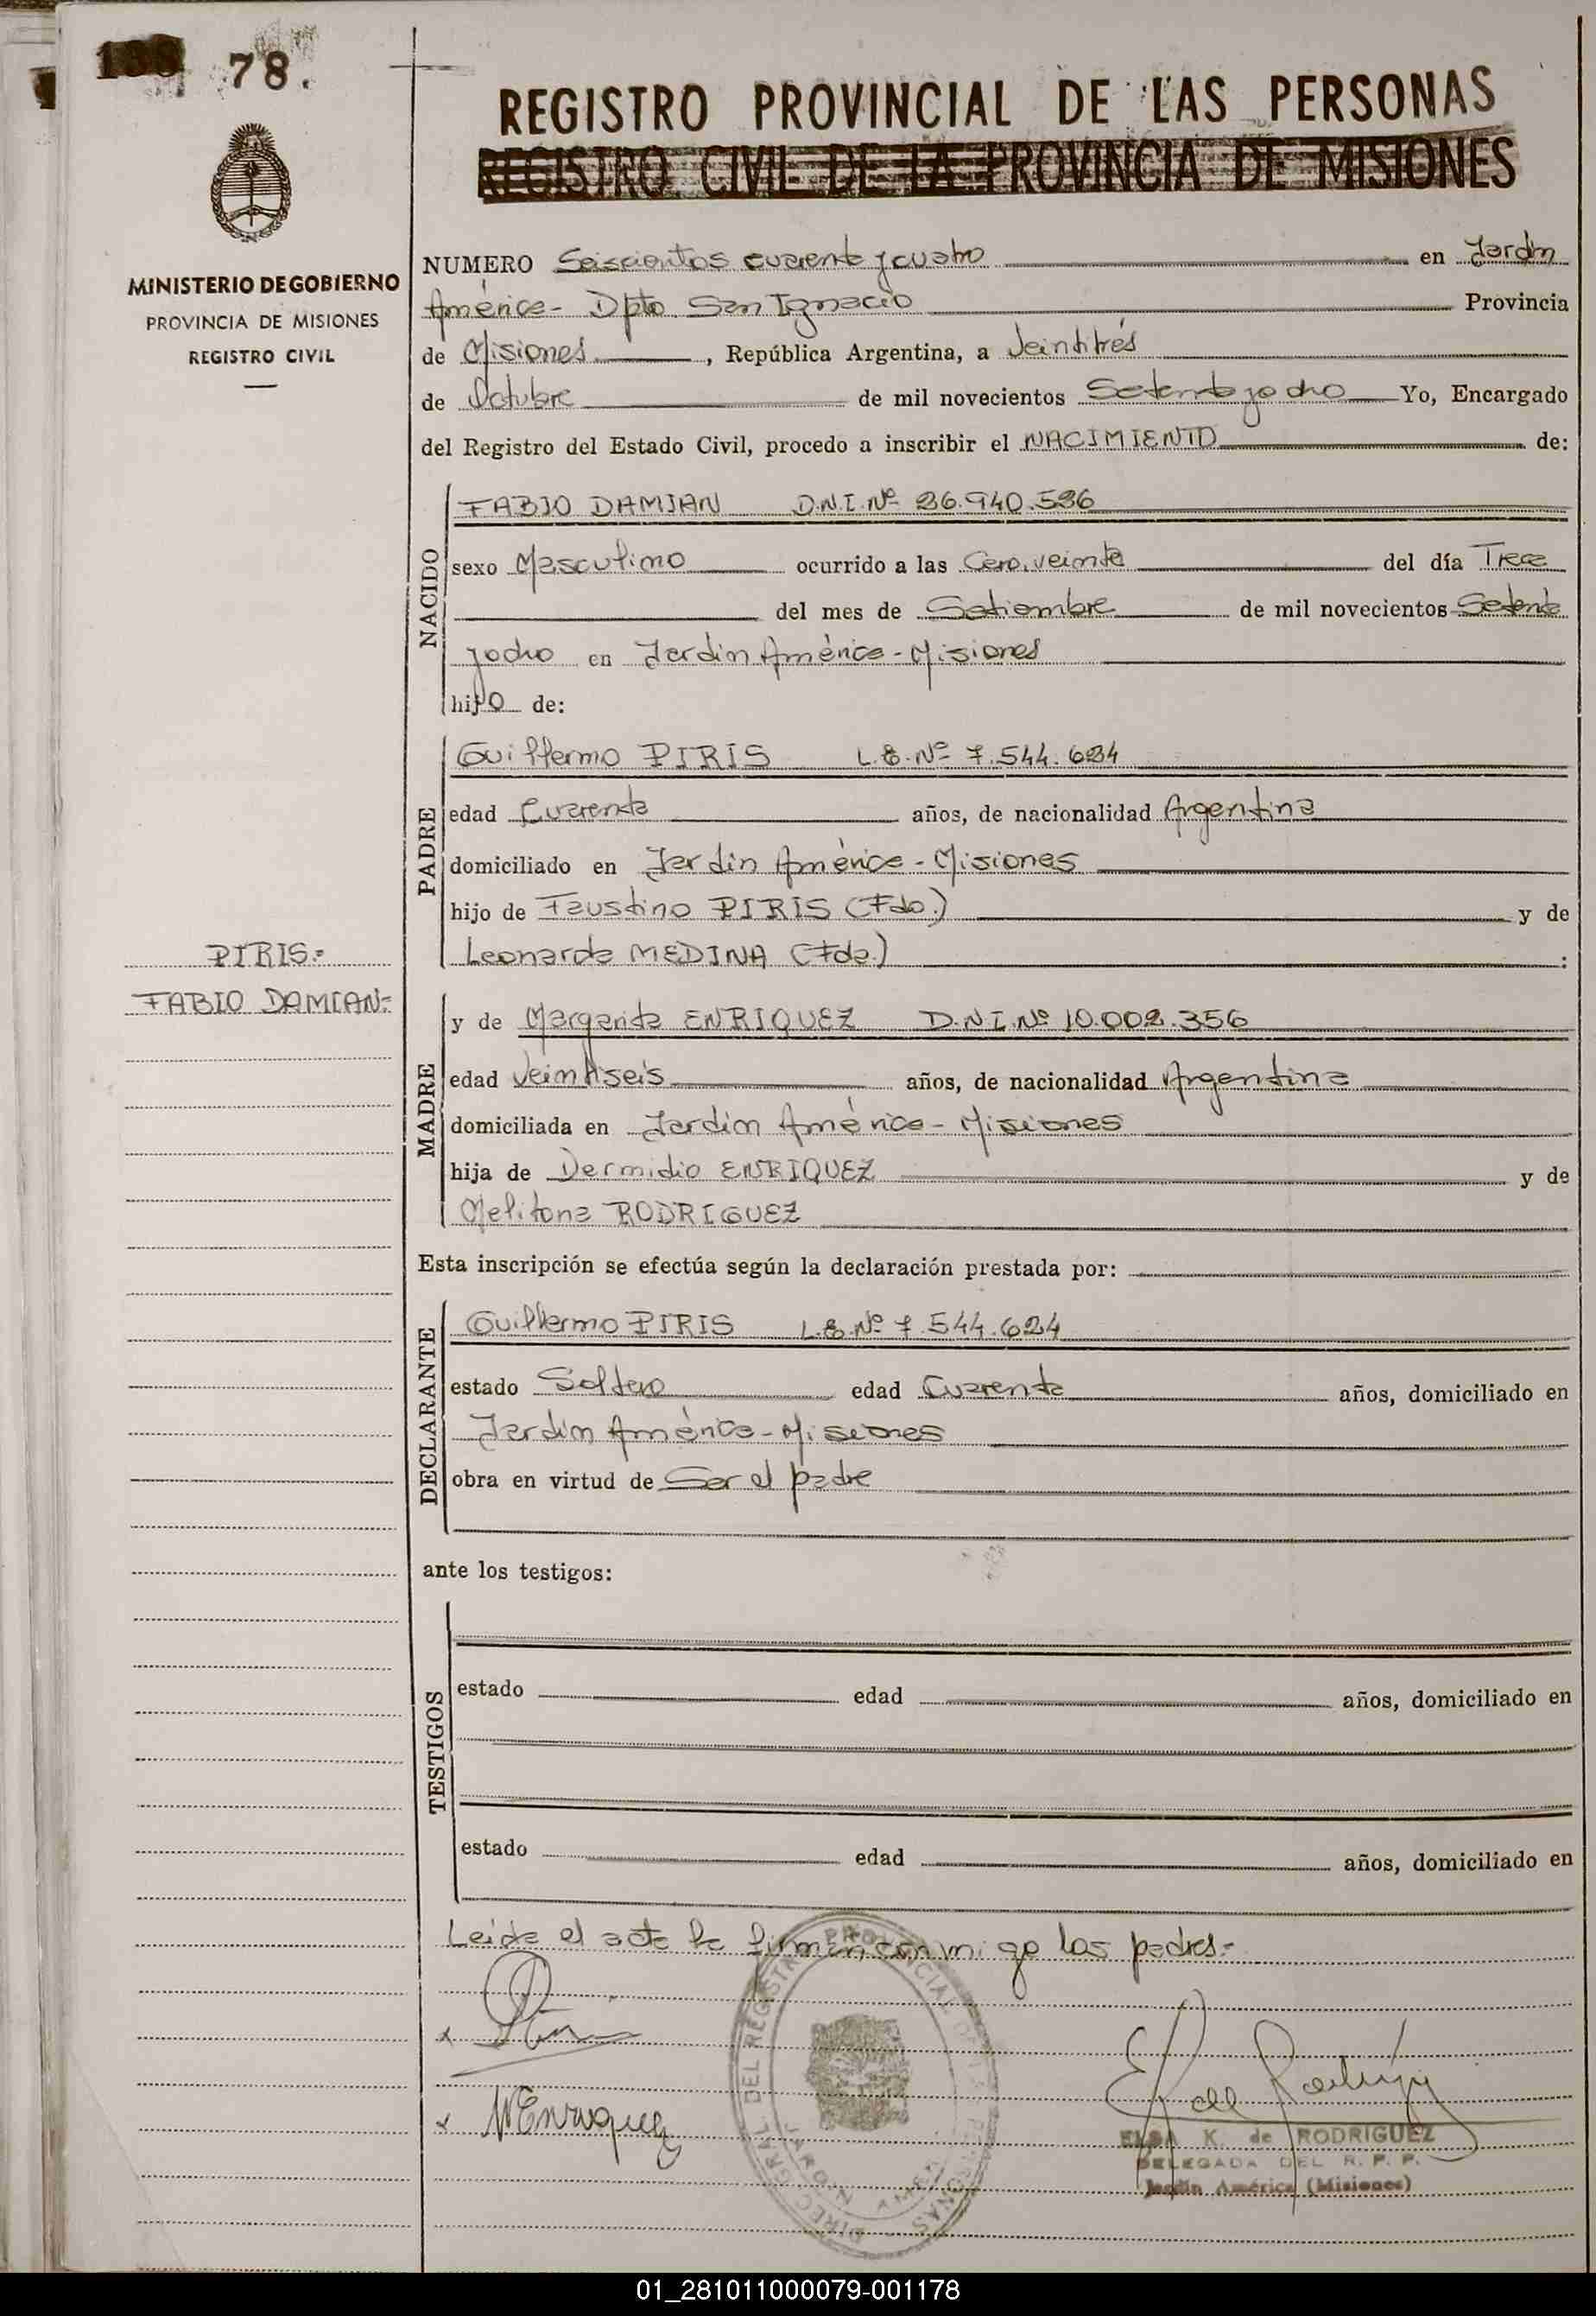 78.
REGISTRO PROVINCIAL DE LAS PERSONAS
REGISTRO CIVIL DE LA PROVINCIA DE MISIONES
MINISTERIO DE GOBIERNO
PROVINCIA DE MISIONES
REGISTRO CIVIL
NUMERO Seiscientos cuarenta y cuatro en Jardín
América- Dpto San Ignacio Provincia
de Misiones, República Argentina, a Veintitrés
de Octubre de mil novecientos Setenta y ocho Yo, Encargado
del Registro del Estado Civil, procedo a inscribir el NACIMIENTO de:
NACIDO
FABIO DAMIAN D.N.I. Nº 26.940.526
sexo Masculino ocurrido a las Cero, veinte del día Trece
del mes de Setiembre de mil novecientos Setenta
y ocho en Jardín América - Misiones
hijo de:
PADRE
Guillermo PIRIS L.E. Nº 7.544.624
edad Cuarenta años, de nacionalidad Argentina
domiciliado en Jardín América - Misiones
hijo de Faustino PIRIS (Fdo.) y de
Leonarda MEDINA (Fda.) :
PIRIS:
FABIO DAMIAN:
MADRE
y de Margarita ENRIQUEZ D.N.I. Nº 10.002.356
edad Veintiseis años, de nacionalidad Argentina
domiciliada en Jardín América - Misiones
hija de Dermidio ENRIQUEZ y de
Melitona RODRIGUEZ
Esta inscripción se efectúa según la declaración prestada por:
DECLARANTE
Guillermo PIRIS L.E. Nº 7.544.624
estado Soltero edad Cuarenta años, domiciliado en
Jardín América - Misiones
obra en virtud de Ser el padre
ante los testigos:
TESTIGOS
estado edad años, domiciliado en
estado edad años, domiciliado en
Leída el acta la firman conmigo los padres.-
x
x MEnriquez
DIREC. GRAL. DEL REGISTRO PROVINCIAL DE LAS PERSONAS
JARDIN AMERICA
ELSA K. de RODRIGUEZ
DELEGADA DEL R. P. P.
Jardín América (Misiones)
01_281011000079-001178